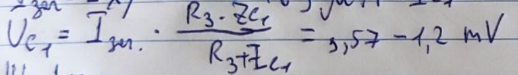 U_C1 = I_zen. · (R3 · Zc1) / (R3 + Zc1) = 3,57 - 1,2 mV